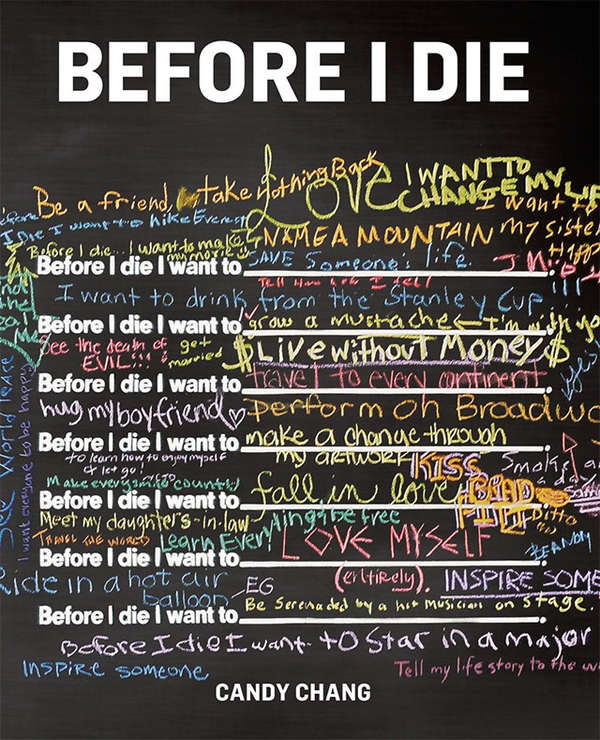 BEFORE I DIE
Be a friend, take nothing Back
Love
I WANT TO
CHANGE MY LIFE
I want to
I Die I want to hike Everest
my sister
Before I die... I want to make
my movie
NAME A MOUNTAIN
Before I die I want to SAVE Someone's life.
Tell Him how I feel
I want to drink from the Stanley Cup
Before I die I want to grow a mustache ← I'm with you
See the death of
EVIL!!!
get
married
$Live without Money$
Before I die I want to travel to every continent.
hug my boyfriend
Perform on Broadwa
Before I die I want to make a change through
my ARTWORK
to learn how to enjoy myself
& let go!
KISS
Smoke
Make every smile count
Before I die I want to fall in love
BRAD
PITT
Ditto
Meet my daughter's-in-law
TRAVEL THE WORLD
Learn Everything & be free
LOVE MYSELF
Before I die I want to
(entirely).
See World Peace
I want everyone to be happy
Ride in a hot air
balloon
EG
INSPIRE SOME
Be Serenaded by a hot Musician on stage.
Before I die I want to
Before I die I want to Star in a major
INSPIRE someone
Tell my life story to the
CANDY CHANG